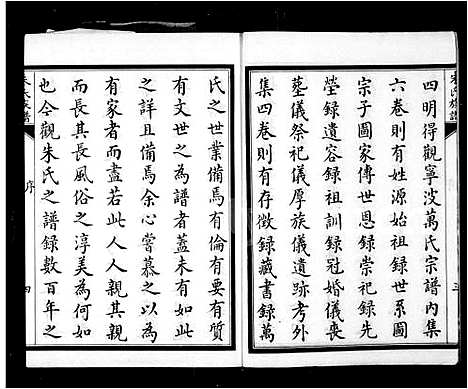 四明得觀寧波萬氏宗譜內集
六卷則有姓源始祖録世系圖
宗子圖家傳世恩録崇祀録先
塋録遺容録祖訓録冠婚儀喪
墓儀祭祀儀厚族儀遺跡考外
集四卷則有存徵録藏書録萬
三
氏之世業備焉有倫有要有質
有文世之為譜者蓋未有如此
之詳且備焉余心嘗慕之以為
有家者而盡若此人人親其親
而長其長風俗之淳美為何如
也今觀朱氏之譜録數百年之
序
四